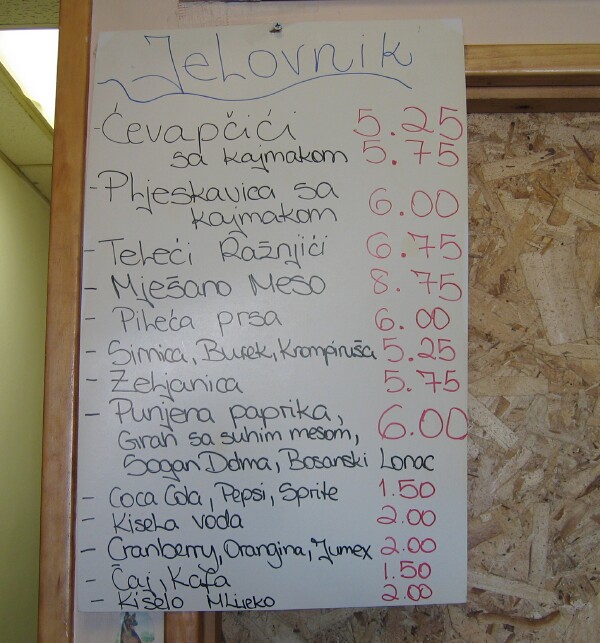 Jelovnik
- Ćevapčići 5.25
sa kajmakom 5.75
- Pljeskavica sa
kajmakom 6.00
- Teleći Ražnjići 6.75
- Mješano Meso 8.75
- Pileća prsa 6.00
- Sirnica, Burek, Krompiruša 5.25
- Zeljanica 5.75
- Punjena paprika, 6.00
Grah sa suhim mesom,
Sogan Dolma, Bosanski Lonac
- Coca Cola, Pepsi, Sprite 1.50
- Kisela voda 2.00
- Cranberry, Orangina, Jumex 2.00
- Čaj, Kafa 1.50
- Kiselo Mlijeko 2.00